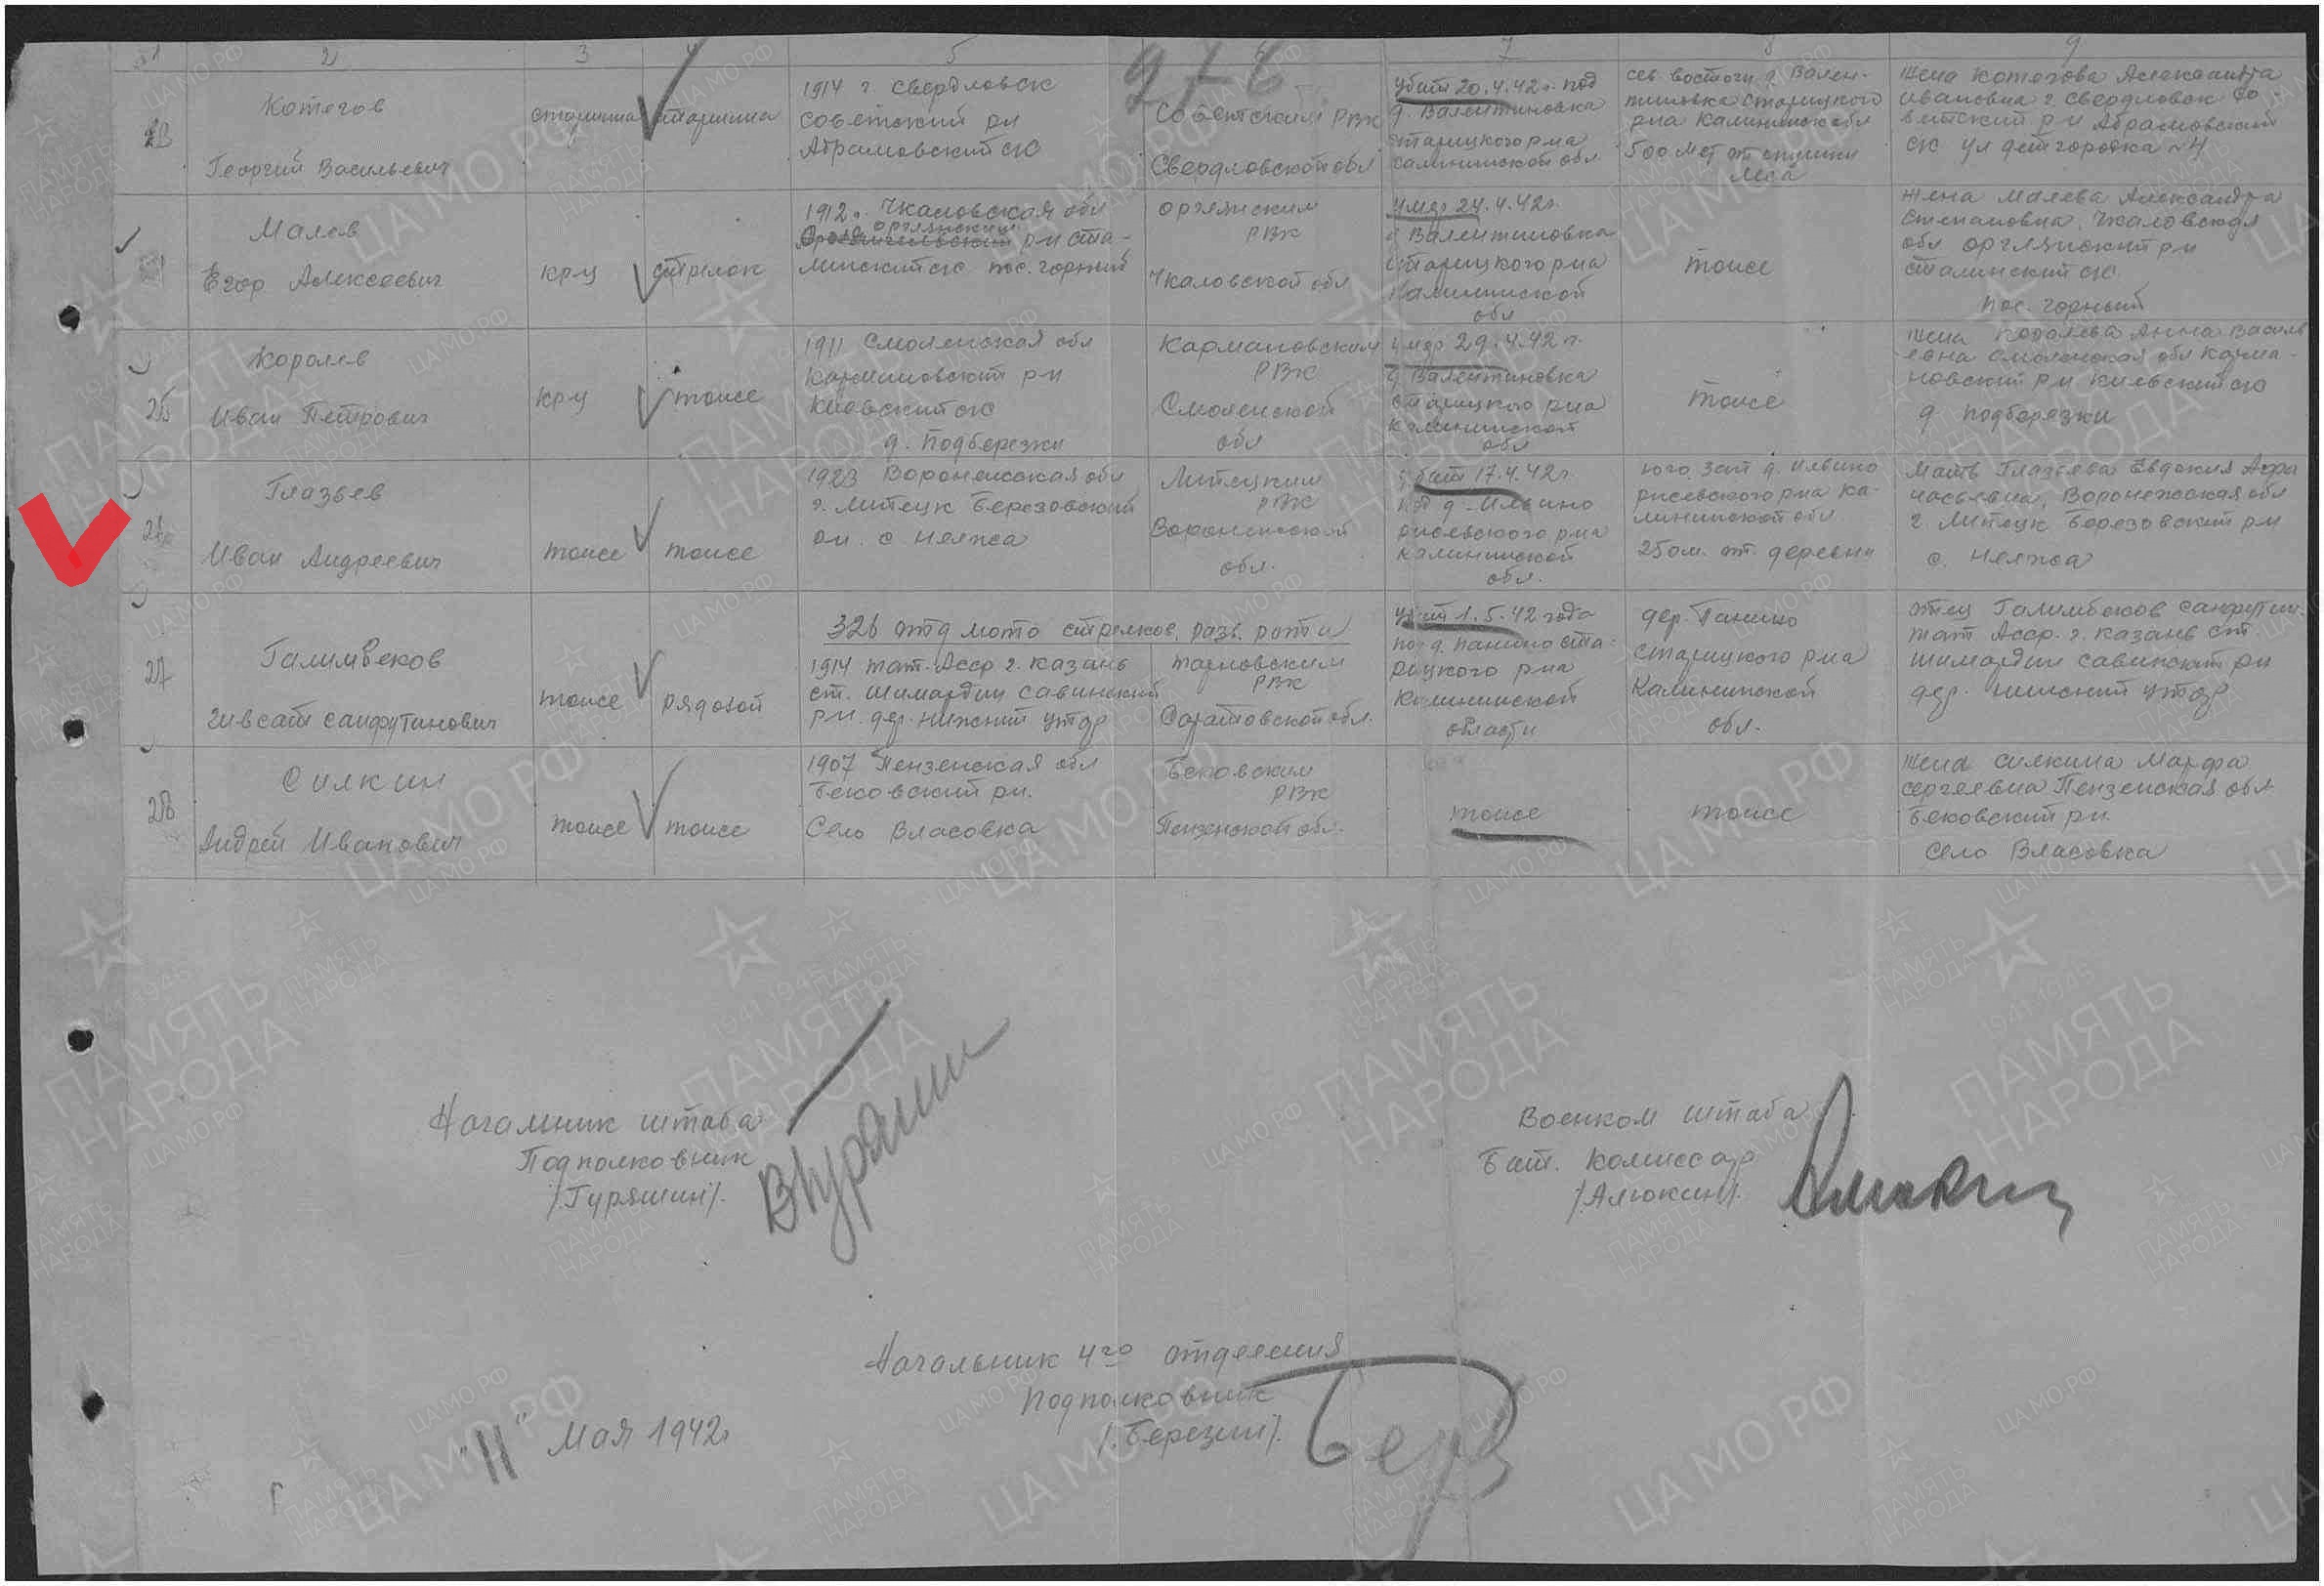 1 2 3 4 5 6 7 8 9
276
23
Котегов
Георгий Васильевич
старшина
старшина
1914 г. Свердловск
Советский р-н
Абрамовский с/с
Советским РВК
Свердловской обл
убит 20.4.42 г. под
д. Валентиновка
Старицкого р-на
Калининской обл
сев. восточн д. Вален-
тиновка Старицкого
р-на Калининск обл
500 мет от опушки
леса
жена Котегова Александра
Ивановна г. Свердловск Со-
ветский р-н Абрамовский
с/с ул детгородка №4
Малев
Егор Алексеевич
кр-ц
стрелок
1912 г. Чкаловская обл
р-н Ста-
линский с/с пос. горный
РВК
Чкаловской обл
умер 24.4.42г.
д Валентиновка
Старицкого р-на
Калининской
обл
тоже
жена Малева Александра
Степановна, Чкаловская
обл р-н
Сталинский с/с
пос. горный
25
Королев
Иван Петрович
кр-ц
тоже
1911 Смоленская обл
Кармановский р-н
Киевский с/с
д. Подберезки
Кармановским
РВК
Смоленской
обл
умер 29.4.42 г.
д Валентиновка
Старицкого р-на
Калининской
обл
тоже
жена Королева Анна Василь
евна Смоленская обл Карма-
новский р-н Киевский с/с
д Подберезки
26
Глазьев
Иван Андреевич
тоже
тоже
1923 Воронежская обл
г. Липецк Березовский
р-н. с Неляжа
Липецким
РВК
Воронежской
обл.
убит 17.4.42 г
под д. Ильино
Ржевского р-на
Калининской
обл.
юго. зап д. Ильино
Ржевского р-на Ка-
лининской обл
250 м. от. деревни
мать Глазьева Евдокия Афа
насьевна, Воронежская обл
г. Липецк Березовский р-н
с. Неляжа
326 отд мото стрелков. разв. рота
27
Галимбеков
Гивсат Сайфутинович
тоже
рядовой
1914 тат. Асср г. Казань
ст. Шимордан Савинский
р-н. дер. Нижний Утар
РВК
Саратовской обл.
убит 1.5.42 года
под д. Панино Ста-
рицкого р-на
Калининской
области
дер. Панино
Старицкого р-на
Калининской
обл.
отец Галимбеков Сайфутин.
тат Асср. г. Казань ст.
Шимордан Савинский р-н
дер. Нижний Утар
28
Силкин
Андрей Иванович
тоже
тоже
1907 Пензенская обл
Бековский р-н.
Село Власовка
Бековским
РВК
Пензенской обл.
тоже
тоже
жена Силкина Марфа
Сергеевна Пензенская обл
Бековский р-н.
Село Власовка
Начальник штаба
Подполковник
/.Гуряшин/.
Военком штаба
Бат. Комиссар
/Алюкин/.
Начальник 4го отделения
Подполковник
/.Березин/.
"11" Мая 1942г
ПАМЯТЬ НАРОДА
1941-1945
ЦА МО РФ